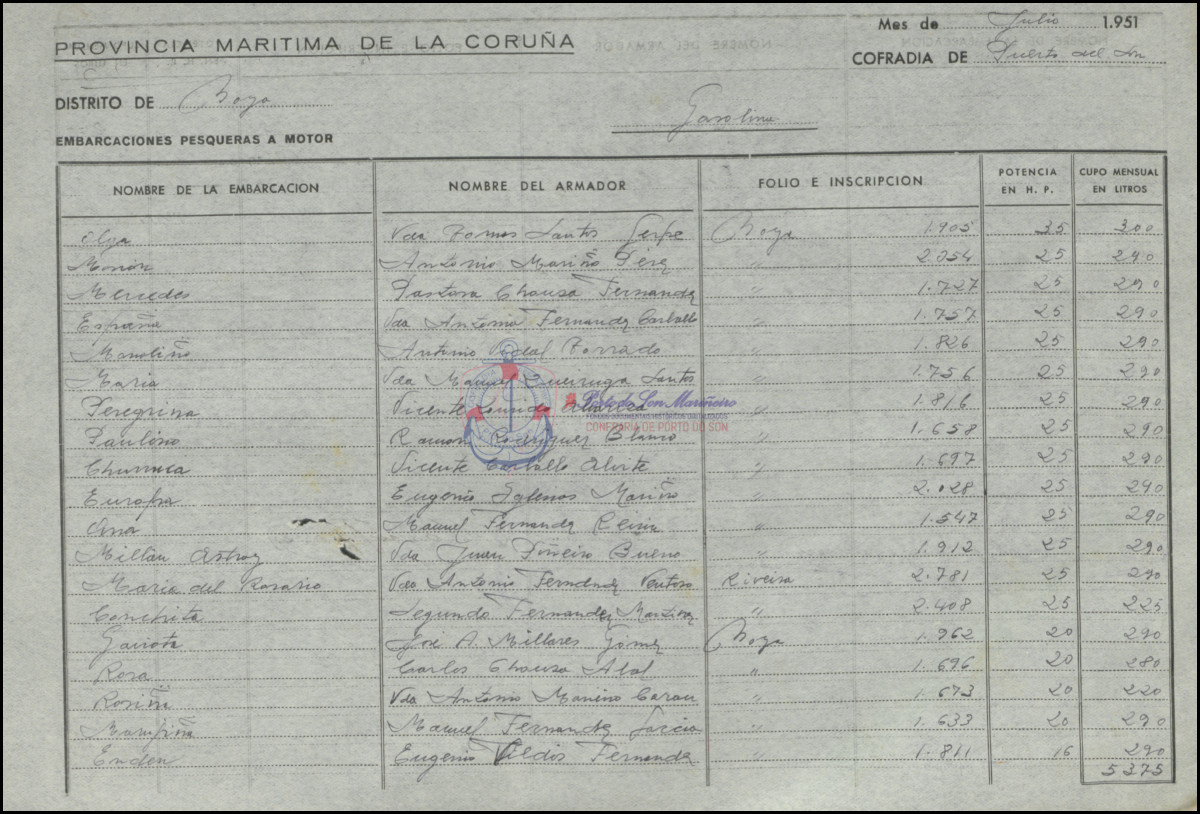 Mes de Julio 1.951
PROVINCIA MARITIMA DE LA CORUÑA
COFRADIA DE Puerto del Son
DISTRITO DE Noya
Gasolina
EMBARCACIONES PESQUERAS A MOTOR
NOMBRE DE LA EMBARCACION NOMBRE DEL ARMADOR FOLIO E INSCRIPCION POTENCIA EN H. P. CUPO MENSUAL EN LITROS
Olga Vda Santos Noya 1.905 35 300
Antonio Mariño Perez " 2.054 25 290
Mercedes Pastora Chousa Fernandez " 1.727 25 290
España Vda Antonio Fernandez Carballo " 1.757 25 290
Manoliño Antonio Vidal " 1.826 25 290
Maria Vda Manuel Queiruga Santos " 1.756 25 290
Peregrina Vicente " 1.816 25 290
Paulino Ramon Rodriguez Blanco " 1.658 25 290
Churruca Vicente Carballo Alvite " 1.697 25 290
Europa Eugenio Iglesias Mariño " 2.028 25 290
Ana Manuel Fernandez " 1.547 25 290
Millan Astray Vda Juan Piñeiro Bueno " 1.912 25 290
Maria del Rosario Vda Antonio Fernandez Ventoso Riveira 2.781 25 290
Conchita Segundo Fernandez Martinez " 2.408 25 225
Gaviota José A. Millares Gómez Noya 1.962 20 290
Rosa Carlos Chousa " 1.696 20 280
Rosiña Vda Antonio " 1.673 20 220
Manuel Fernandez Garcia " 1.633 20 290
Eugenio Fernandez " 1.811 16 290
5375
Porto do Son Mariñeiro
CONFRARIA DE PORTO DO SON